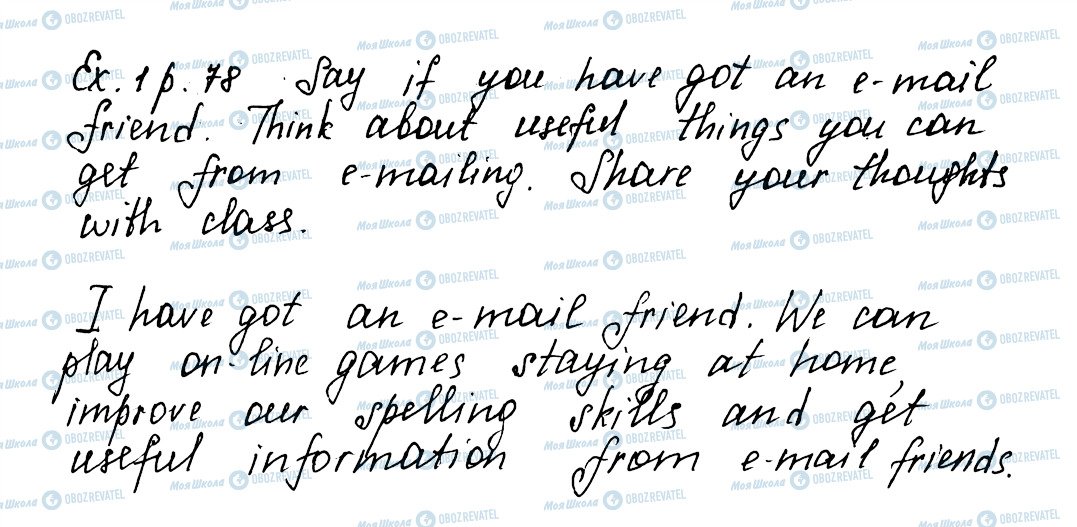 Ex. 1 p. 78 Say if you have got an e-mail
friend. Think about useful things you can
get from e-mailing. Share your thoughts
with class.
I have got an e-mail friend. We can
play on-line games staying at home,
improve our spelling skills and get
useful information from e-mail friends.
МояШкола OBOZREVATEL